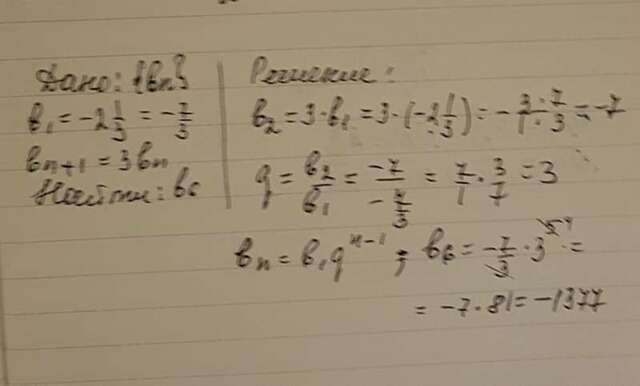 Дано: {bn}
b₁ = -2 1/3 = -7/3
bn+1 = 3bn
Найти: b6
Решение:
b₂ = 3·b₁ = 3·(-2 1/3) = - 3·7/1·3 = -7
q = b₂/b₁ = -7/-7/3 = 7/1 · 3/7 = 3
bn = b₁qⁿ⁻¹; b6 = -7/3 · 3⁵ ⁴ =
= -7·81 = -1377